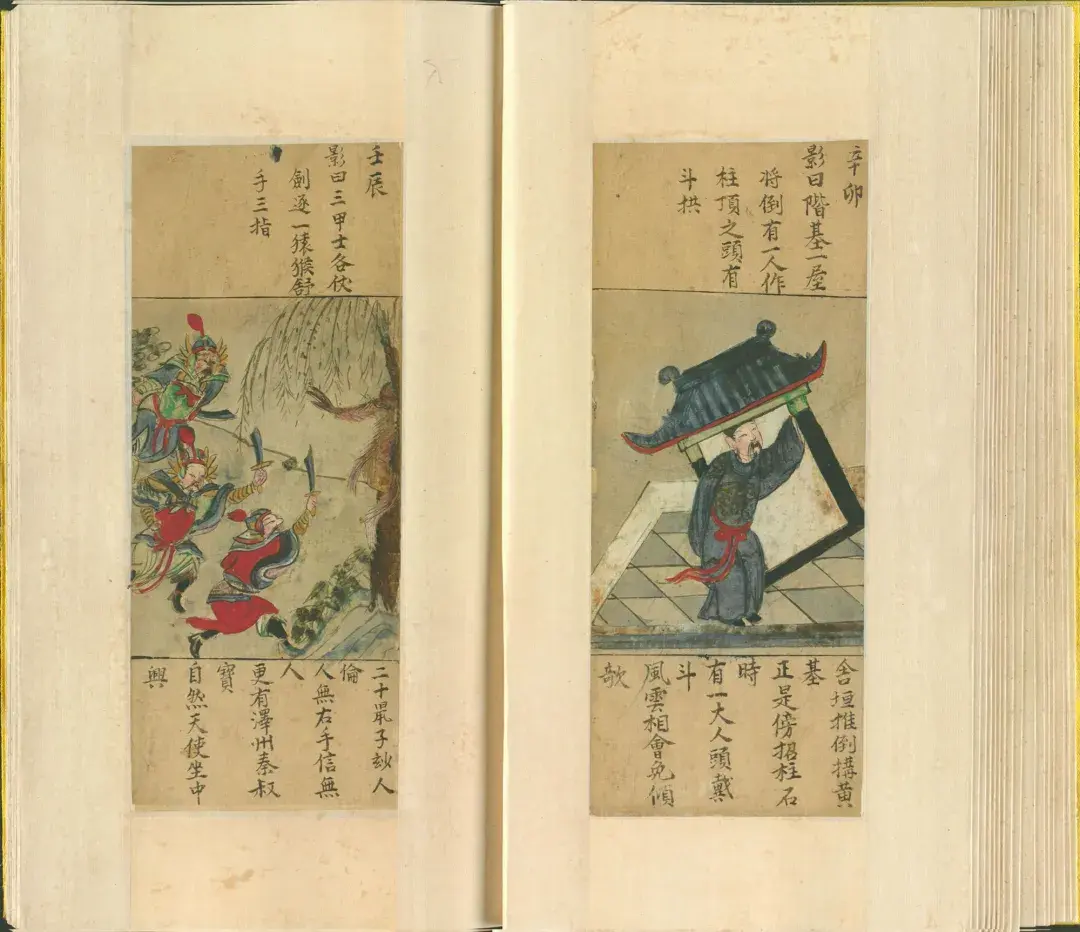 辛卯
影曰階基一屋
将倒有一人作
柱頂之頭有
斗拱
舍垣推倒搆黃
基
正是傍招柱石
時
有一大人頭戴
斗
風雲相會免傾
歌
壬辰
影曰三甲士各仗
劍逐一猿猴舒
手三指
二十鼠子玅人
倫
人無右手信無
人
更有澤州秦叔
寶
自然天使坐中
興